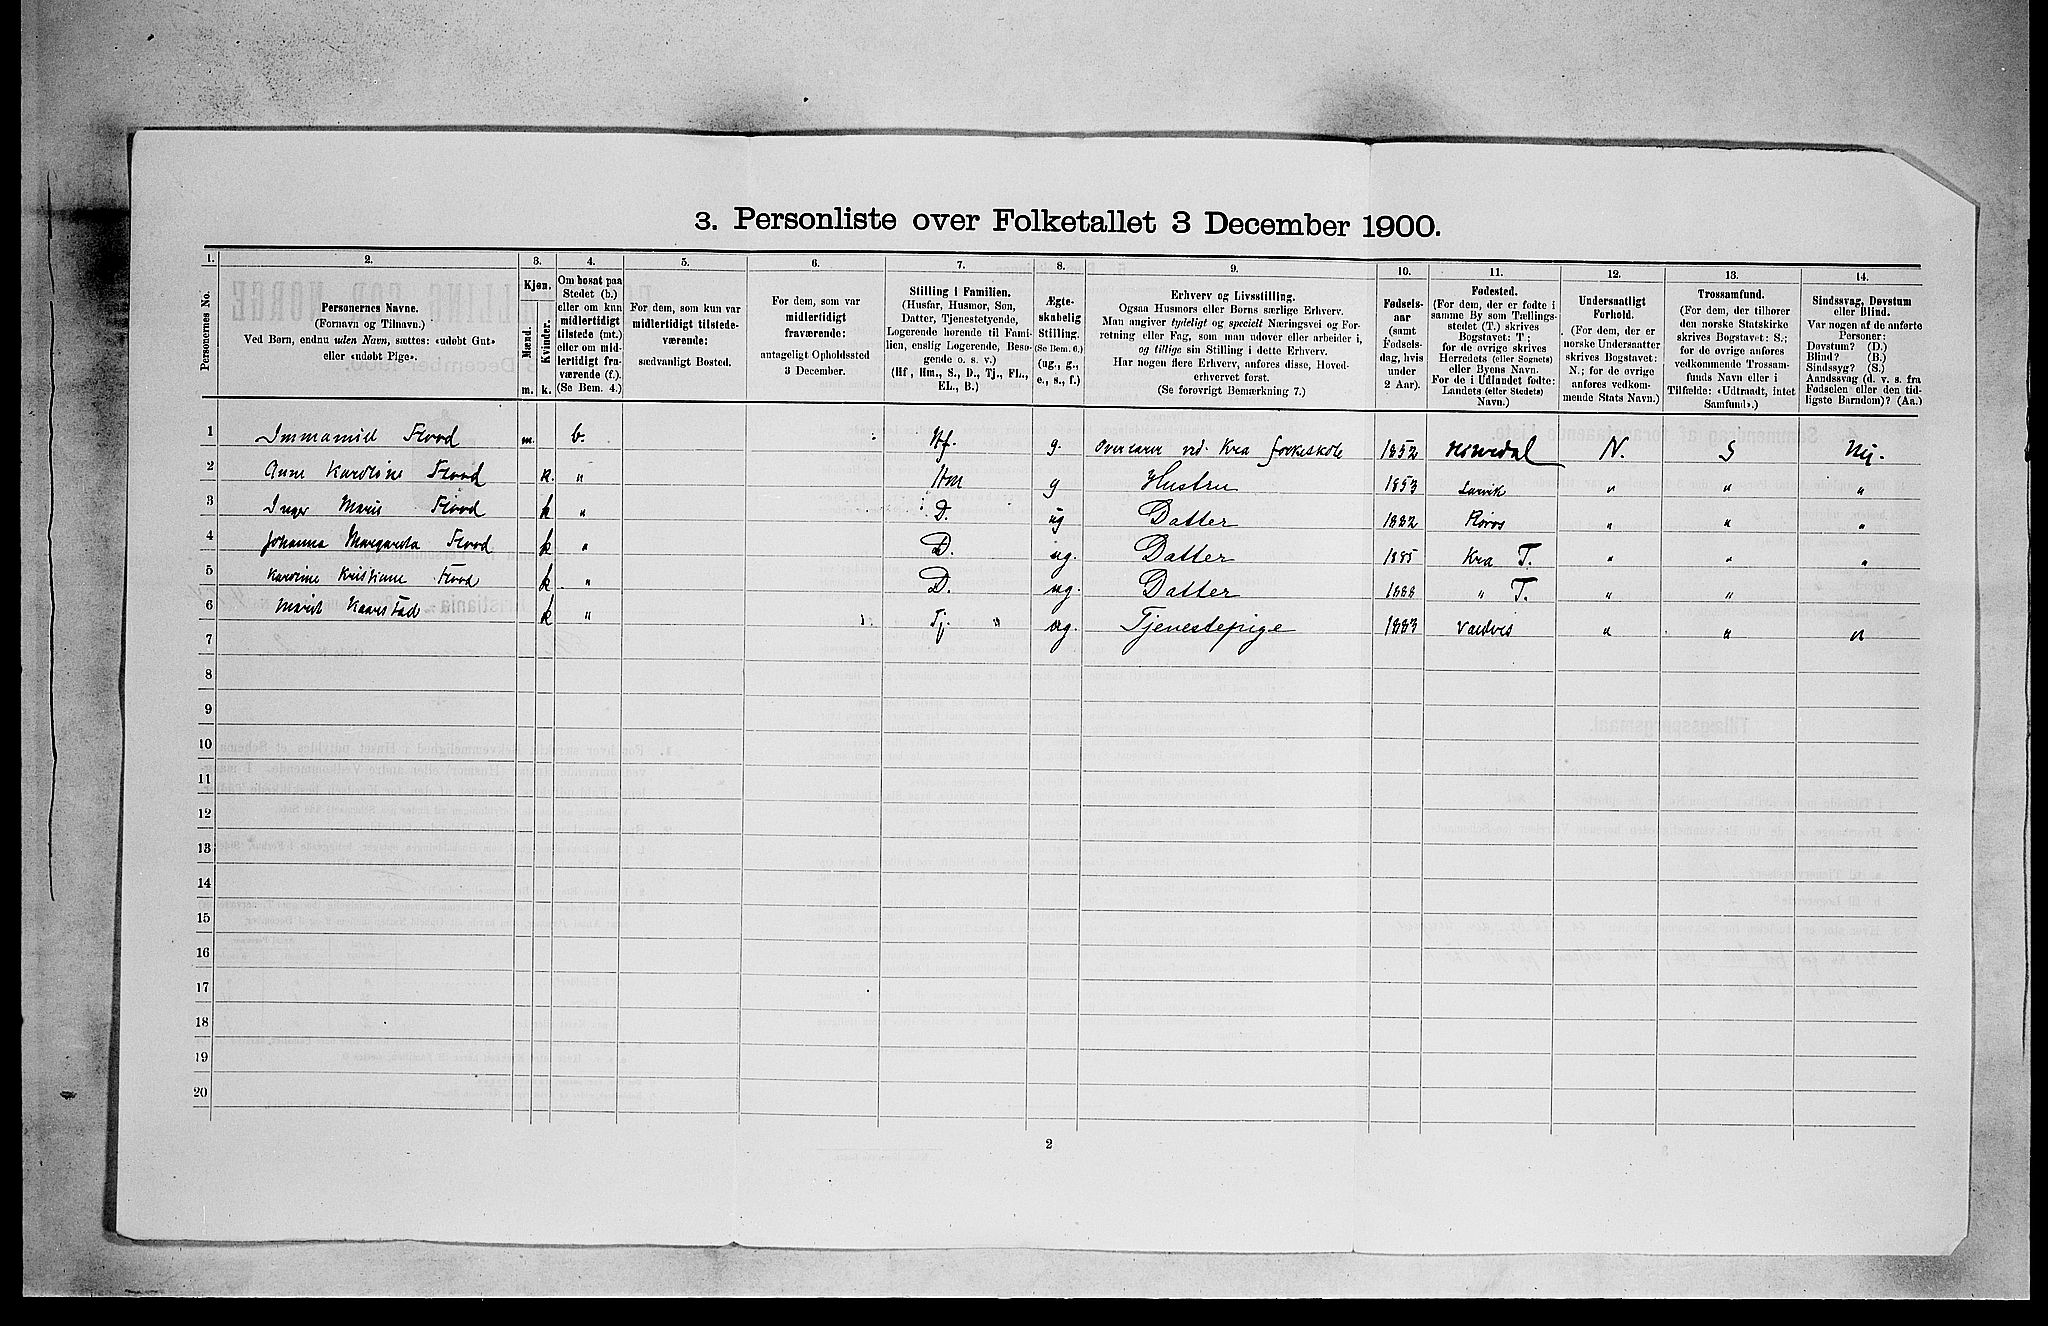 3. Personliste over Folketallet 3 December 1900.
1. 2. 3. 4. 5. 6. 7. 8. 9. 10. 11. 12. 13. 14.
Personernes No.
Personernes Navne.
(Fornavn og Tilnavn.)
Ved Børn, endnu uden Navn, sættes: «udøbt Gut»
eller «udøbt Pige».
Kjøn.
Mænd.
Kvinder.
m. k.
Om bosat paa
Stedet (b.)
eller om kun
midlertidigt
tilstede (mt.)
eller om mid-
lertidigt fra-
værende (f.).
(Se Bem. 4.)
For dem, som kun var
midlertidigt tilstede-
værende:
sædvanligt Bosted.
For dem, som var
midlertidigt
fraværende:
antageligt Opholdssted
3 December.
Stilling i Familien.
(Husfar, Husmor, Søn,
Datter, Tjenestetyende,
Logerende hørende til Fami-
lien, enslig Logerende, Besø-
gende o. s. v.)
(Hf, Hm., S., D., Tj., FL.,
EL., B.)
Ægte-
skabelig
Stilling.
(Se Bem. 6.)
(ug., g.,
e., s., f.)
Erhverv og Livsstilling.
Ogsaa Husmors eller Børns særlige Erhverv.
Man angiver tydeligt og specielt Næringsvei og For-
retning eller Fag, som man udøver eller arbeider i,
og tillige sin Stilling i dette Erhverv.
Har nogen flere Erhverv, anføres disse, Hoved-
erhvervet først.
(Se forøvrigt Bemærkning 7.)
Fødsels-
aar
(samt
Fødsels-
dag, hvis
under
2 Aar).
Fødested.
(For dem, der er fødte i
samme By som Tællings-
stedet (T.) skrives
Bogstavet: T;
for de øvrige skrives
Herredets (eller Sognets)
eller Byens Navn.
For de i Udlandet fødte:
Landets (eller Stedets)
Navn.)
Undersaatligt
Forhold.
(For dem, der er
norske Undersaatter
skrives Bogstavet:
N.; for de øvrige
anføres vedkom-
mende Stats Navn.)
Trossamfund.
(For dem, der tilhører
den norske Statskirke
skrives Bogstavet: S.;
for de øvrige anføres
vedkommende Trossam-
funds Navn eller i
Tilfælde: «Udtraadt, intet
Samfund».)
Sindssvag, Døvstum
eller Blind.
Var nogen af de anførte
Personer:
Døvstum? (D.)
Blind? (B.)
Sindssyg? (S.)
Aandssvag (d. v. s. fra
Fødselen eller den tid-
ligste Barndom)? (Aa.)
1 Immanuel Flood m. b. Hf. g. Overlærer ved Kra folkeskole 1852 N. S Nei.
2 Anne Karoline Flood k. " Hm g Hustru 1853 Larvik " " "
3 Inger Marie Flood k " D. ug Datter 1882 Røros " " "
4 Johanna Margareta Flood k " D. ug. Datter 1885 Kra T. " " "
5 Karoline Kristiane Flood k " D. ug. Datter 1888 " T. " " "
6 Marit Kaarstad k " Tj " ug. Tjenestepige 1883 " " "
7
8
9
10
11
12
13
14
15
16
17
18
19
20
2